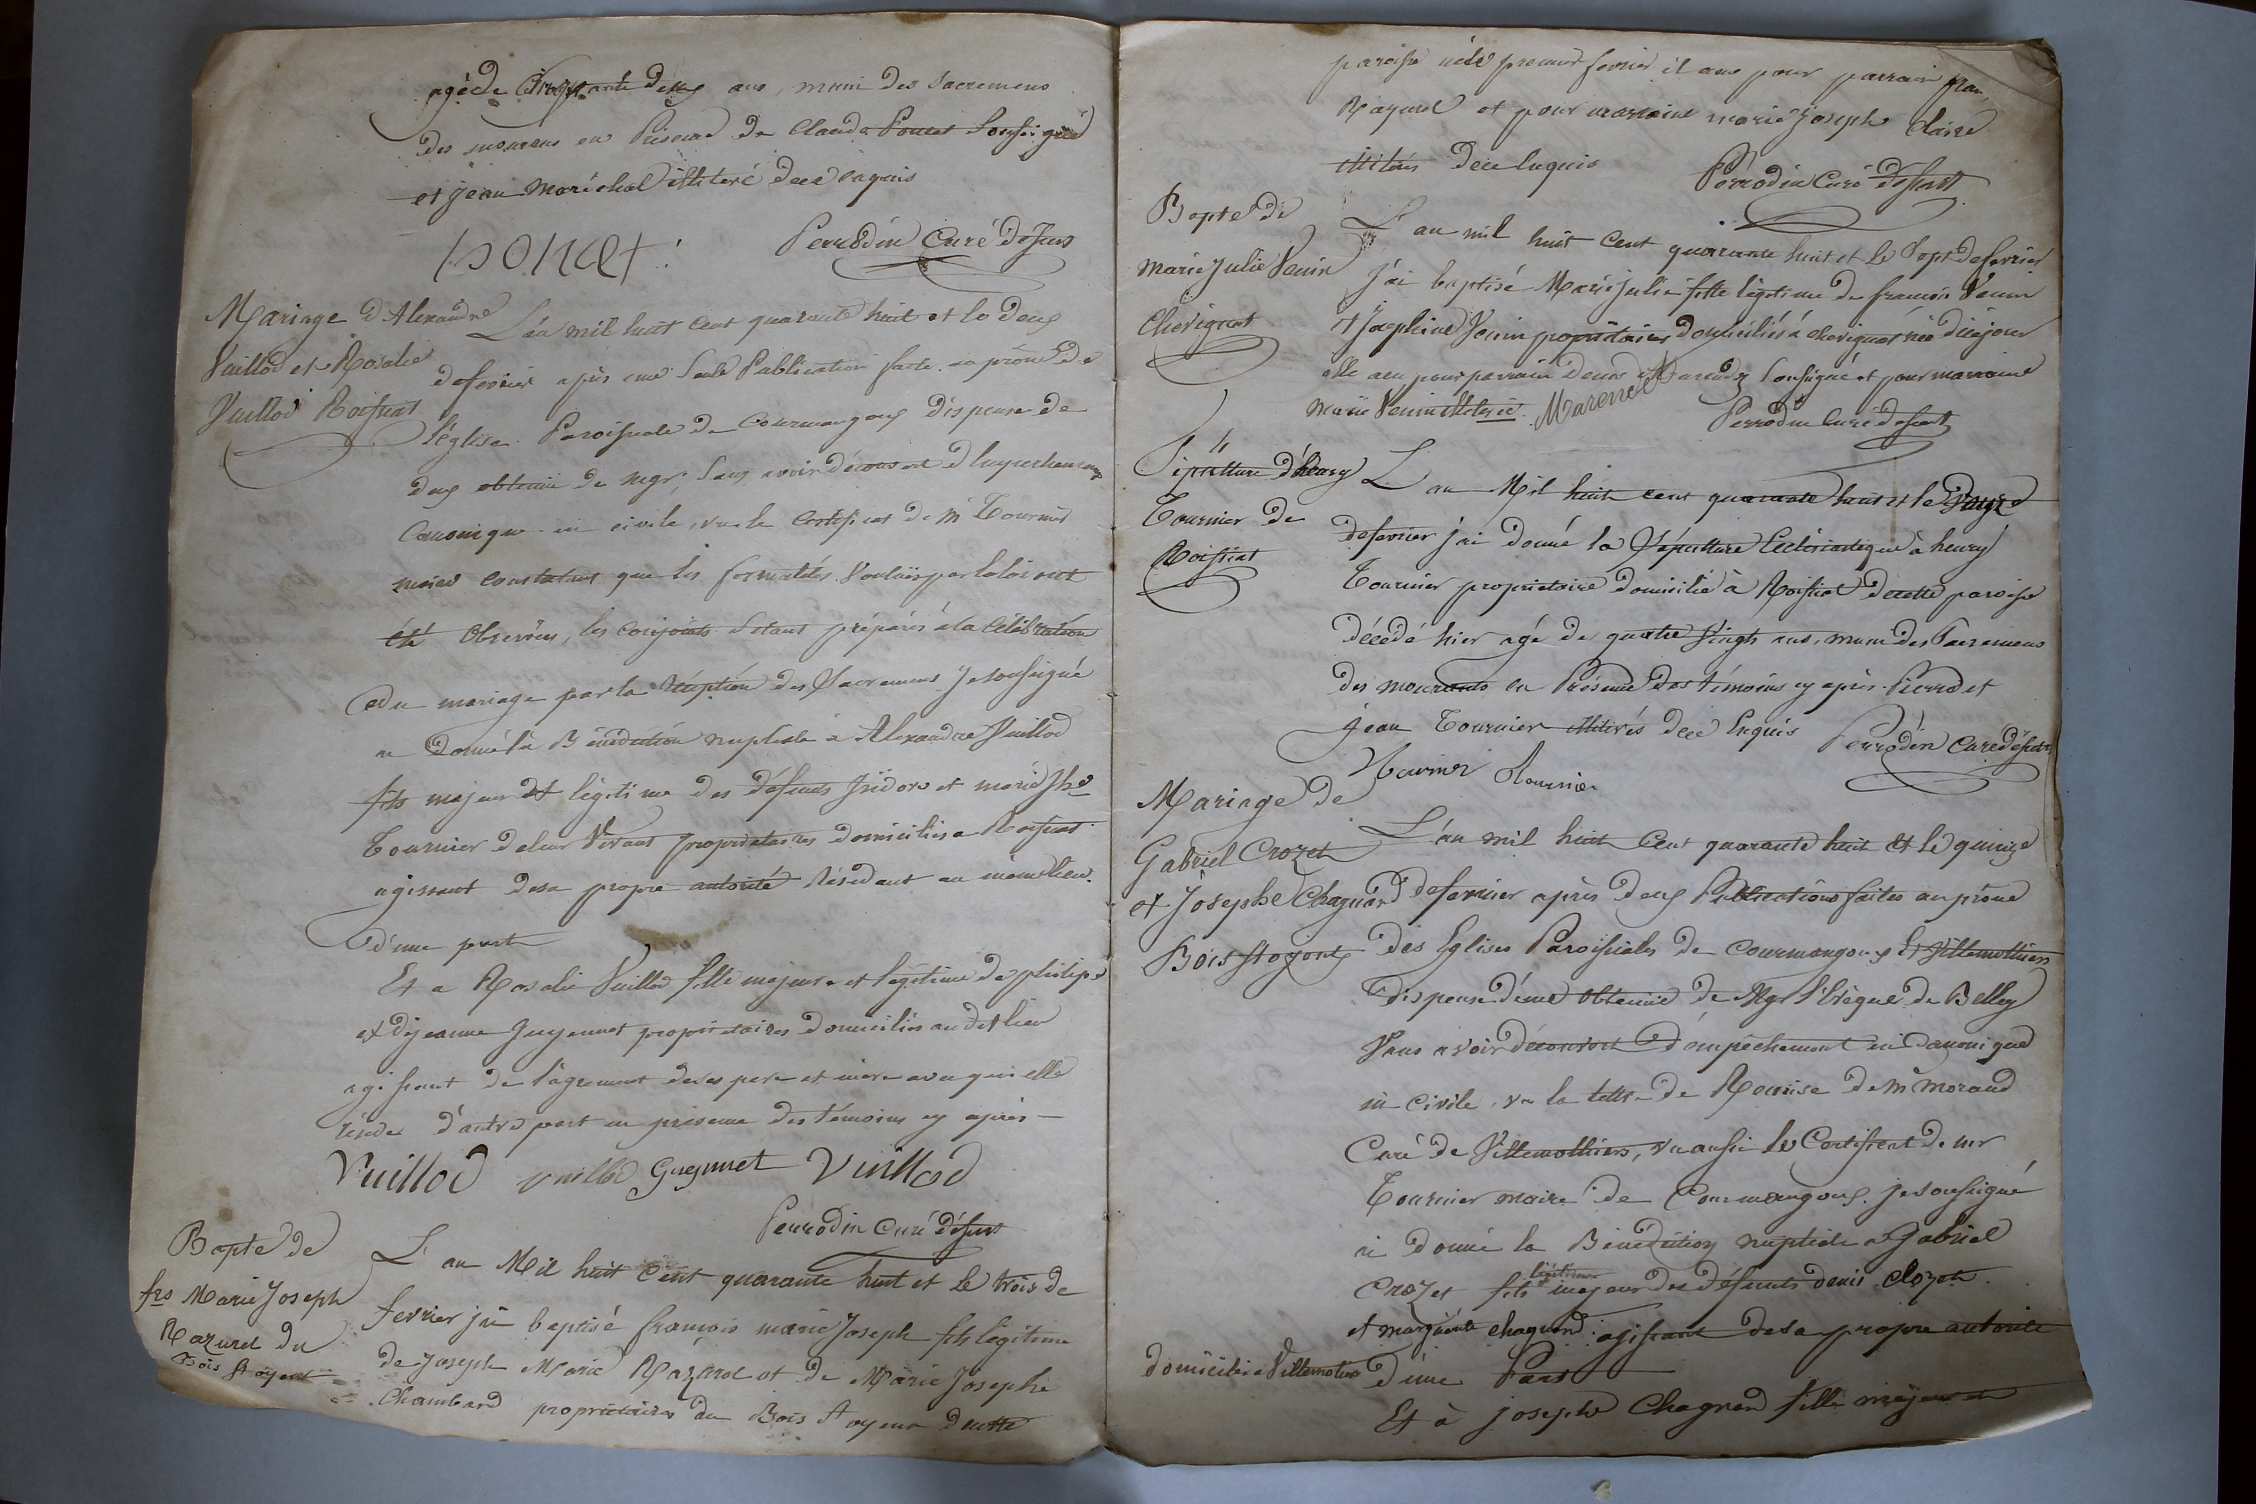 agé de Cinquante deux ans, muni des Sacremens
des mourans en Présence de Claude Poncet Soussigné
et jean Maréchal illiteré dece enquis
poncet
Perrodin Curé desservt
Mariage d'Alexandre
Vuillod et Rosalie
Vuillod Roissiat
L'an mil huit cent quarante huit et le deux
de fevrier après une Seule Publication faite au prône de
l'église Paroissiale de Courmangoux dispense de
deux obtenue de mgr, Sans avoir découvert d'empechement
Canonique ni civile, vu le Certificat de mr Tournier
maire constatant que les formalités Voulues par la loi ont
été observées, les conjoints S'étant préparés à la Célébration
du mariage par la Réception des Sacremens Je soussigné
ai Donné la Bénédiction nuptiale à Alexandre Vuillod
fils majeur et légitime des défunts Isidore et marie Jhe
Tournier de leur Vivant propriétaires domiciliés a Roissiat
agissant de sa propre autorité Résidant au même lieu
d'une part
Et a Rosalie Vuillod fille majeure et légitime de philipe
et de jeanne Guyennet propriétaires domiciliés au dit lieu
agissant de l'agrément de ses pere et mere avec qui elle
réside d'autre part en présence des témoins cy après
Vuillod vuillod Guyennet Vuillod
Perrodin curé desservt
Bapte de
frs Marie Joseph
Razurel du
Bois Stoyent
L'an Mil huit Cent quarante huit et le trois de
fevrier j'ai baptisé françois marie Joseph fils légitime
de Joseph Marie Razurel et de Marie Josephe
Chambard propriétaires du Bois Stoyent de cette
paroisse né le premier fevrier il a eu pour parrain
Razurel et pour marraine marie Joseph Claire
illitérés dece Enquis
Perrodin Curé desservt
Bapte de
Marie Julie Venin
Chevignat
L'an mil huit Cent quarante huit et le Sept de fevrier
J'ai baptisé Marie julie fille légitime de françois Venin
et Josephine Venin propriétaires domiciliés à chevignat née
elle a eu pour parrain denis Marendet Soussigné et pour marraine
marie Venin illiterée. Marendet
Perrodin Curé desservt
Sépulture d'henry
Tournier de
Roissiat
L'an Mil huit cent quarante huit et le Douze
de fevrier j'ai donné la Sépulture Ecclésiastique à henry
Tournier propriétaire domicilié à Roissiat de cette paroisse
décédé hier agé de quatre Vingts ans, muni des Sacremens
des mourants en Présence des témoins cy après Pierre et
jean Tournier illitérés dece Enquis Perrodin curé desservt
Tournier Tournier
Mariage de
Gabriel Crozet
et Josephe Chagnard
Bois Stoyent
L'an mil huit Cent quarante huit et le quinze
de fevrier après deux Publications faites au prône
des Eglises Paroissiales de Courmangoux et Villemottiers
dispense d'une obtenue de Mgr l'évèque de Belley
Sans avoir découvert d'empêchement ni Canonique
ni civile, vu la lettre de Remise de mr morand
Curé de Villemottiers, vu aussi le Certificat de mr
Tournier maire de Courmangoux, je soussigné
ai donné la Bénédiction nuptiale a Gabriel
Crozet fils légitime majeur des défunts denis Crozet
et marguerite chagnard agissant de sa propre autorité
domicilié a Villemotiers d'une Part
Et à josephe Chagnard fille majeure et